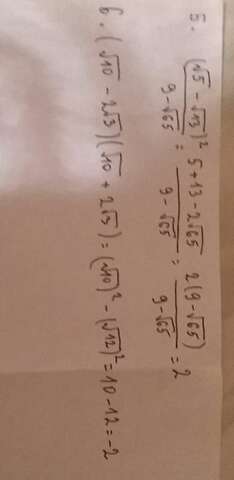 5. (√5 - √13)² / 9 - √65 = 5 + 13 - 2√65 / 9 - √65 = 2(9 - √65) / 9 - √65 = 2
6. (√10 - 2√3)(√10 + 2√3) = (√10)² - (√12)² = 10 - 12 = -2